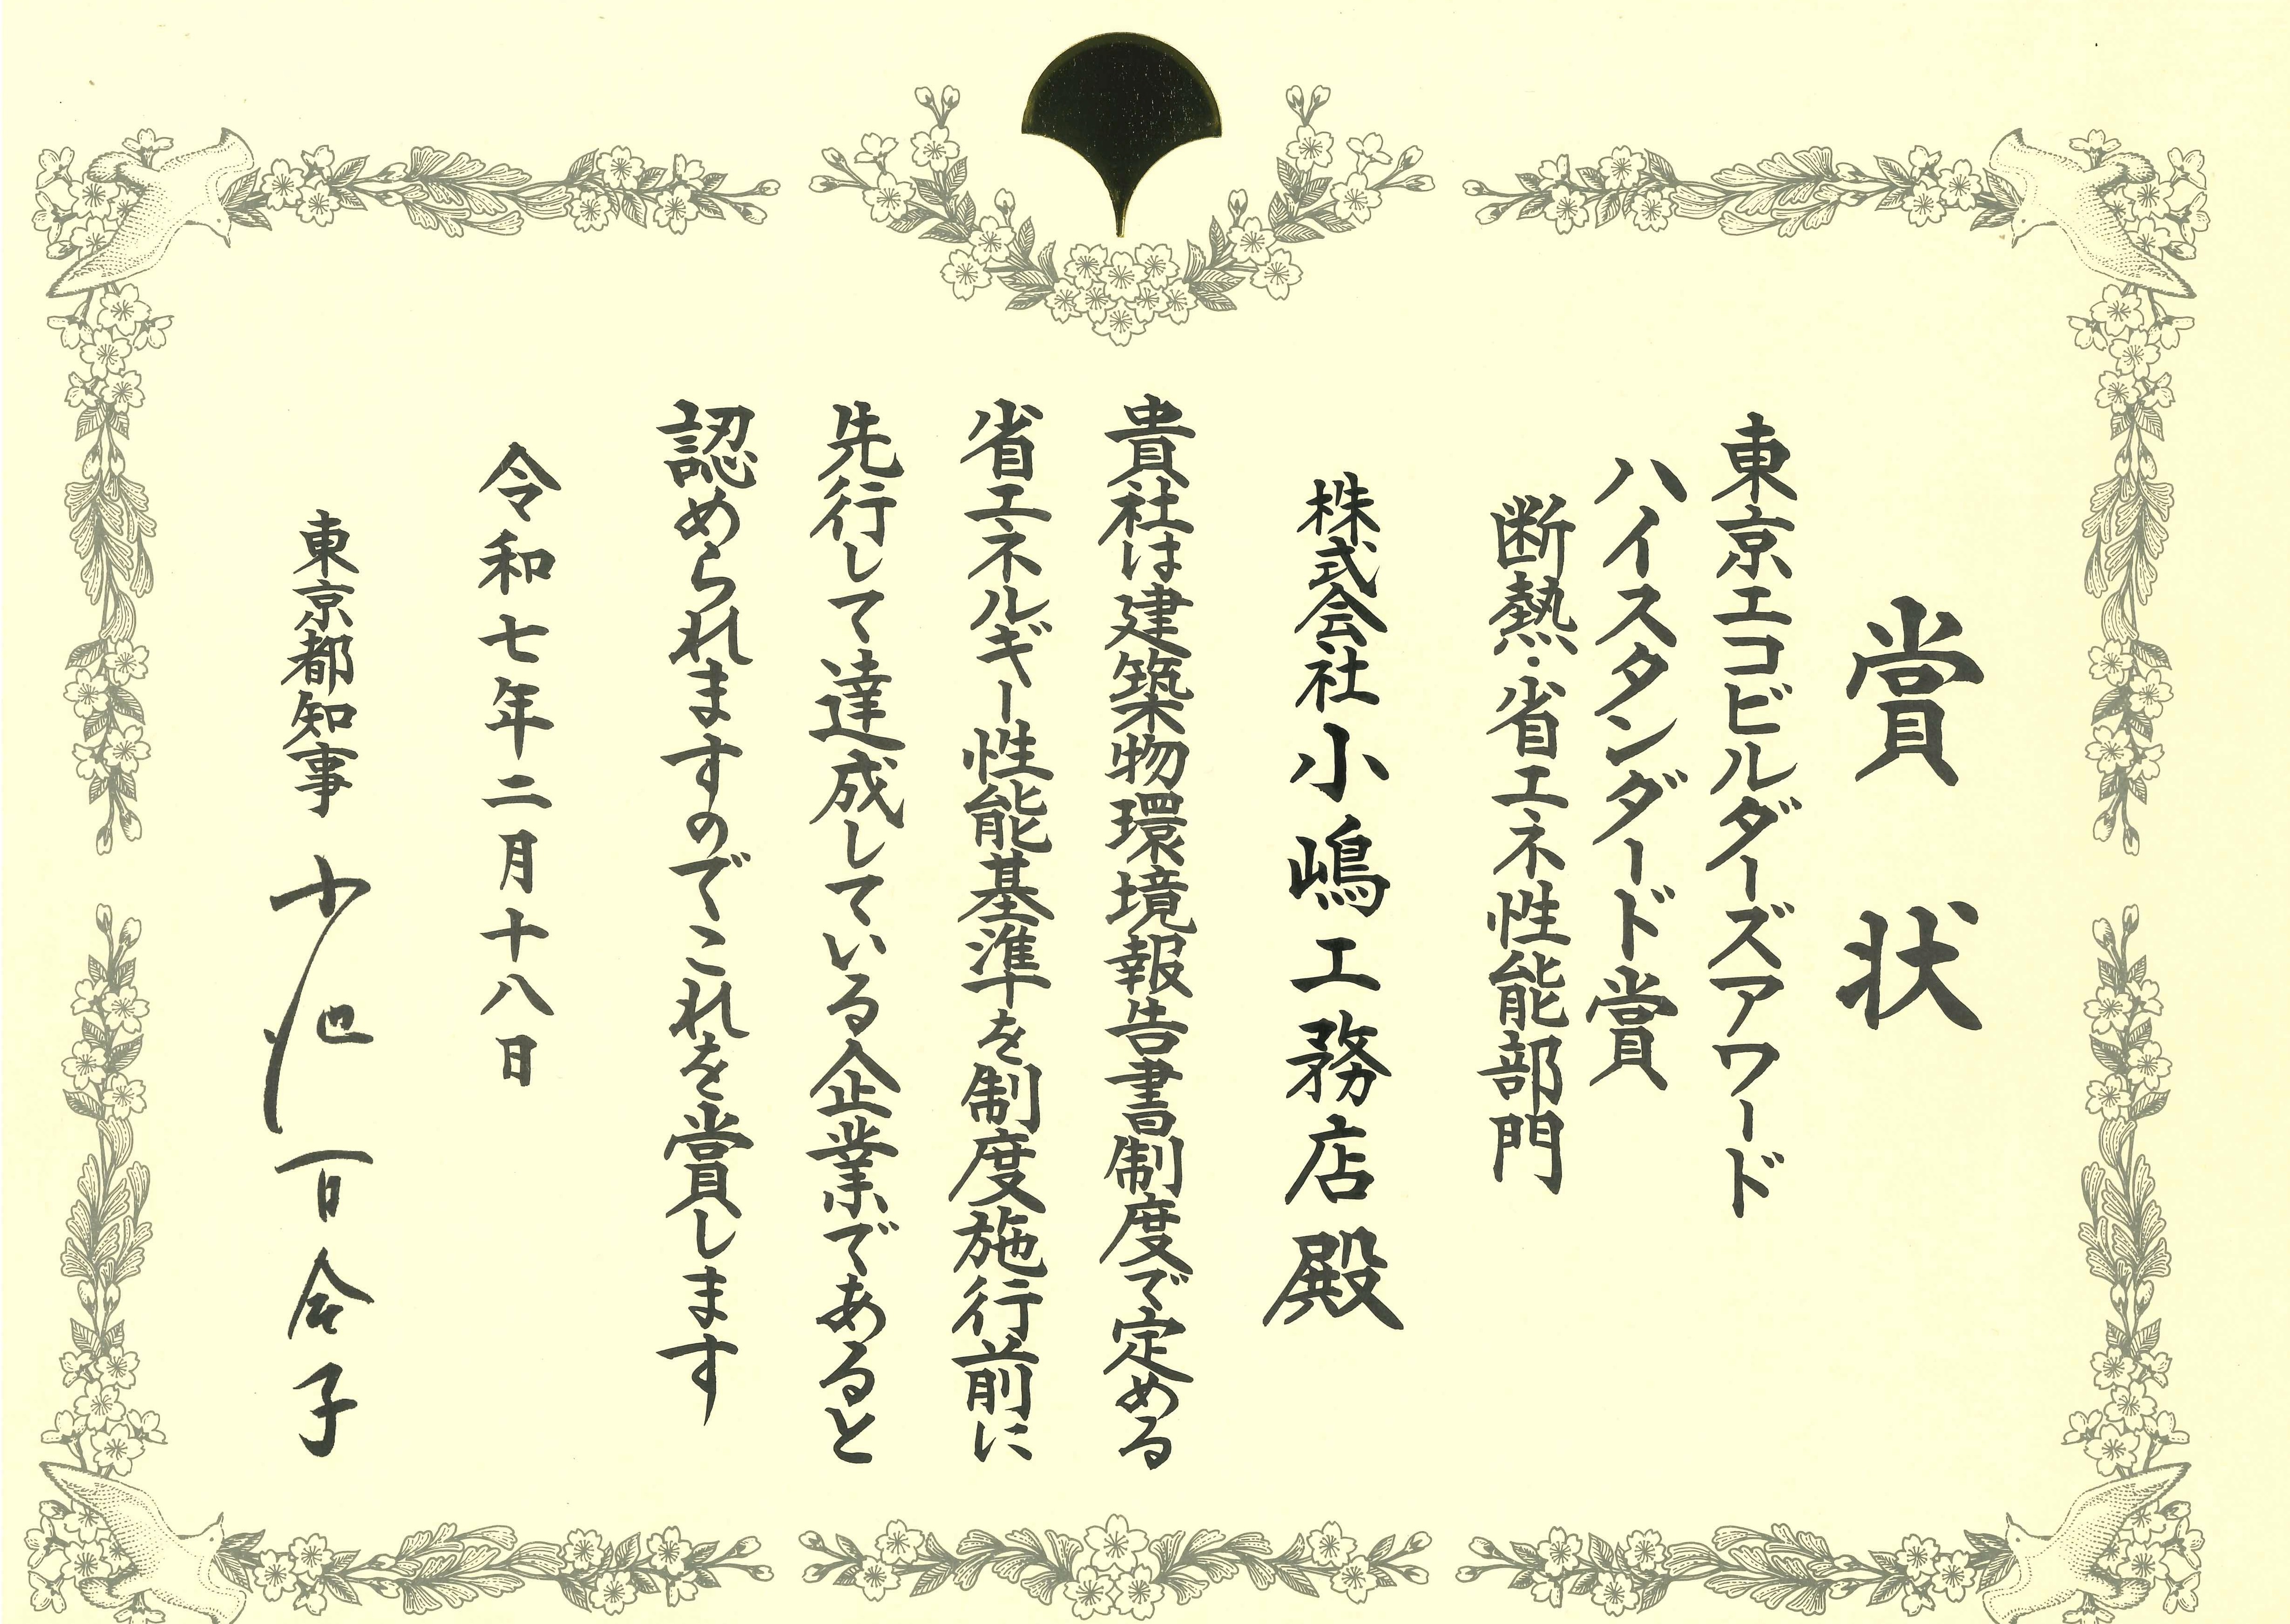 賞状
東京エコビルダーズアワード
ハイスタンダード賞
断熱・省エネ性能部門
株式会社小嶋工務店殿
貴社は建築物環境報告書制度で定める
省エネルギー性能基準を制度施行前に
先行して達成している企業であると
認められますのでこれを賞します
令和七年二月十八日
東京都知事 小池百合子